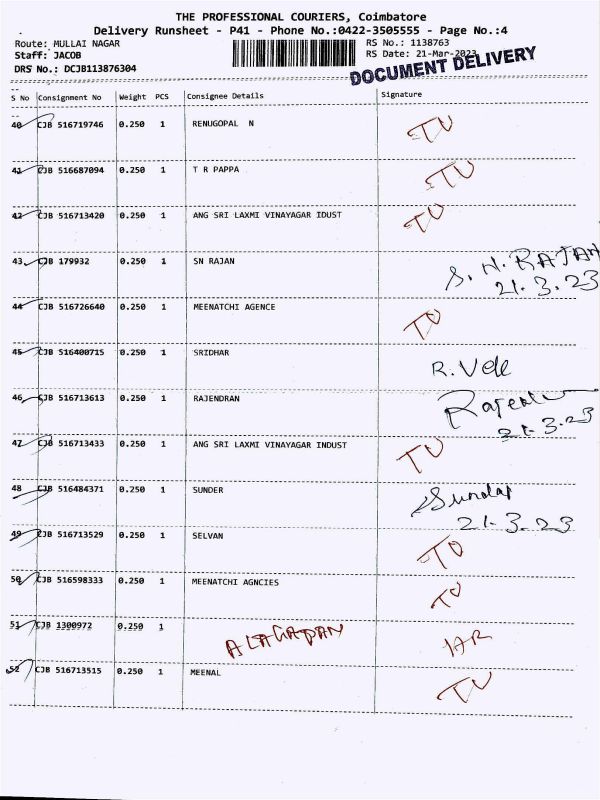 THE PROFESSIONAL COURIERS, Coimbatore
Delivery Runsheet - P41 - Phone No.:0422-3505555 - Page No.:4
Route: MULLAI NAGAR RS No.: 1138763
Staff: JACOB RS Date: 21-Mar-2023
DRS No.: DCJB113876304 DOCUMENT DELIVERY
S No Consignment No Weight PCS Consignee Details Signature
40 CJB 516719746 0.250 1 RENUGOPAL N TU
41 CJB 516687094 0.250 1 T R PAPPA TU
42 CJB 516713420 0.250 1 ANG SRI LAXMI VINAYAGAR IDUST TU
43 CJB 179932 0.250 1 SN RAJAN S. N. RAJAN
21.3.23
44 CJB 516726640 0.250 1 MEENATCHI AGENCE TU
45 CJB 516400715 0.250 1 SRIDHAR R.
46 CJB 516713613 0.250 1 RAJENDRAN
21.3.23
47 CJB 516713433 0.250 1 ANG SRI LAXMI VINAYAGAR INDUST TU
48 CJB 516484371 0.250 1 SUNDER Sundar
21.3.23
49 CJB 516713529 0.250 1 SELVAN TU
50 CJB 516598333 0.250 1 MEENATCHI AGNCIES TU
51 CJB 1300972 0.250 1
52 CJB 516713515 0.250 1 MEENAL TU